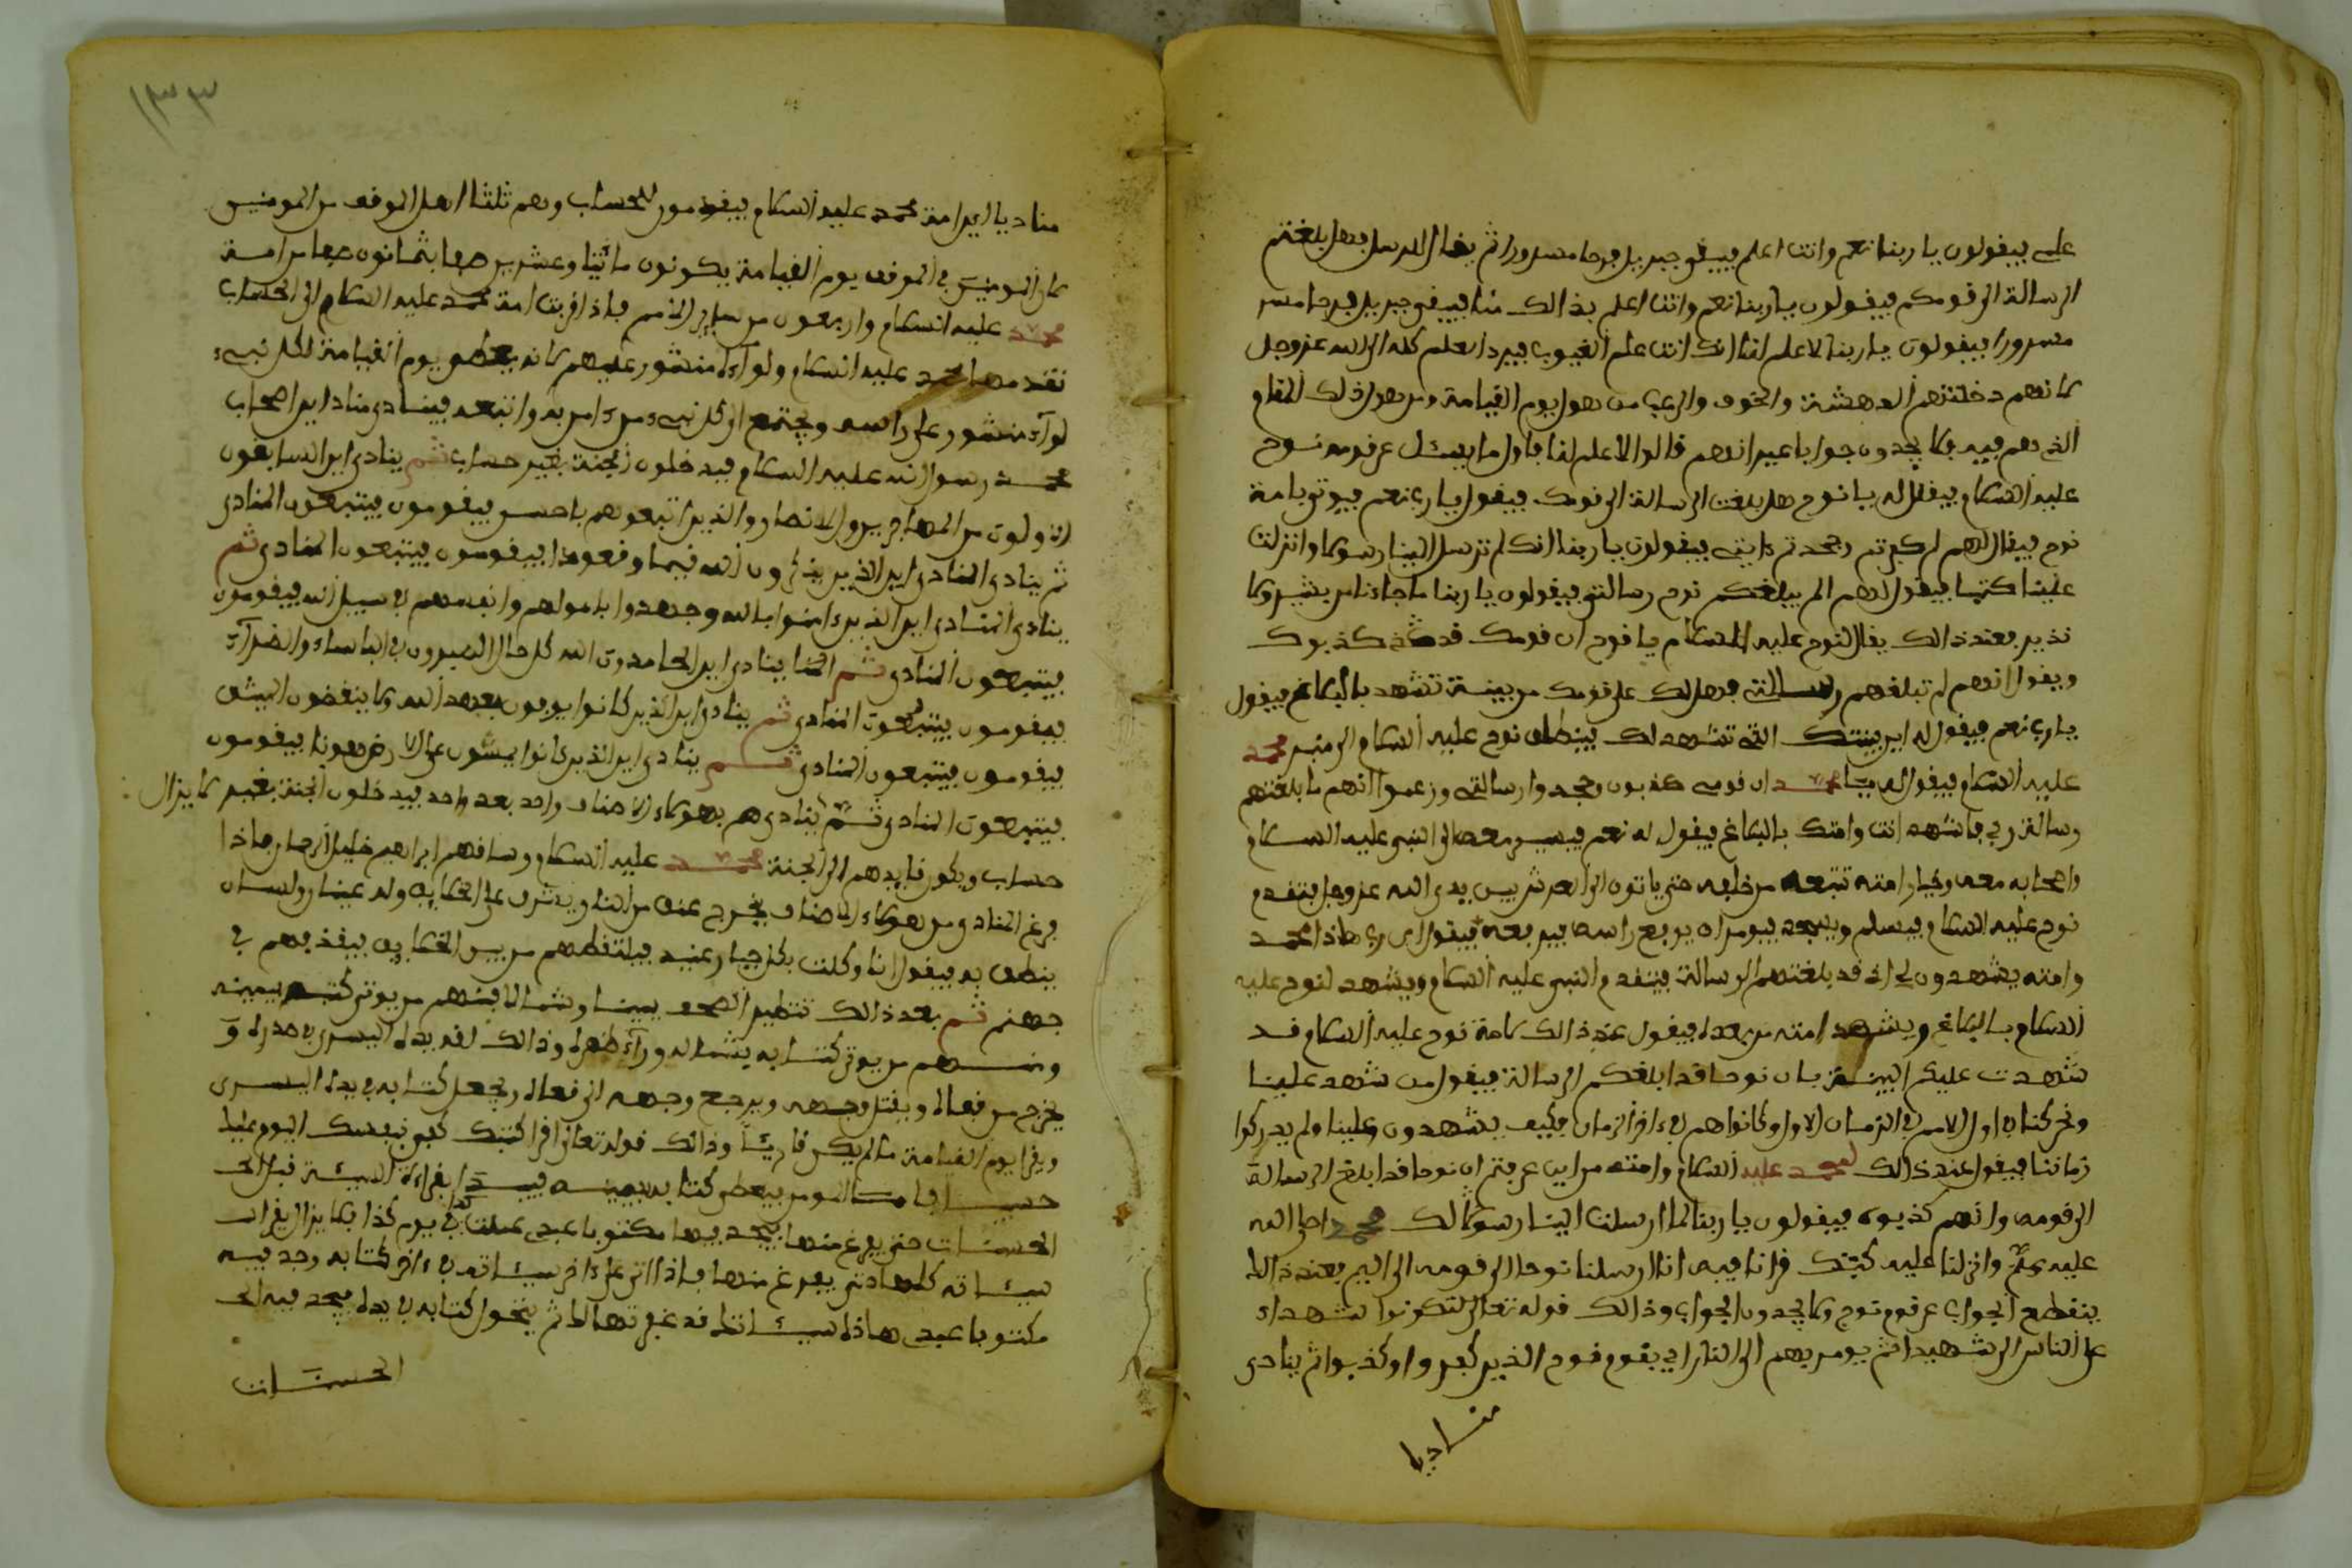 علي فيقولون يا ربنا نعم وانت اعلم فيبقى جبريل فرحا مسرورا ثم يقال للرسل فهل بلغتم
الرسالة الى قومكم فيقولون يا ربنا نعم وانت اعلم بذالك منا فيبقى جبريل فرحا مسر
مسرورا فيقولون يا ربنا لا علم لنا انك انت علم الغيوب فيرد العلم كله الى الله عز وجل
لانهم دخلتهم الدهشة والخوف والرعب من هول يوم القيامة ومن هول ذلك المقام
الذي هم فيه فلا يجدون جوابا غير انهم قالوا لا علم لنا فاول ما يسئل عن قومه نوح
عليه السلام فيقال له يا نوح هل بلغت الرسالة الى قومك فيقول يا رب نعم فيوتى بامة
نوح فيقال لهم لم كفرتم وجحدتم ءايتي فيقولون يا ربنا انك لم ترسل الينا رسولا وانزلت
علينا كتبا فيقول لهم الم يبلغكم نوح رسالتي فيقولون يا ربنا ما جاءنا من بشير ولا
نذير بعند ذالك يقال لنوح عليه السلام يا نوح ان قومك قد كذبوك
ويقولوا انهم لم تبلغهم رسالتي فهل لك على قومك من بينة تشهد بالبلاغ فيقول
يا رب نعم فيقول له اين بينتك التي تشهد لك فينطلق نوح عليه السلام الى منبر محمد
عليه السلام فيقول له يا محمد ان قومي كذبون وجحدوا رسالتي وزعموا انهم ما بلغتهم
رسالة ربي فاشهد انت وامتك بالبلاغ فيقول له نعم فيسير معه الى النبي عليه السلام
واصحابه معه وخيار امته تتبعه من خلفه حتى ياتون الى العرش بين يدي الله عز وجل فيتقدم
نوح عليه السلام فيسلم ويسجد فيومر ان يرفع راسه فيرفعه فيقول اي رب هاذا محمد
وامته يشهدون لي اني قد بلغتهم الرسالة فيتقدم النبي عليه السلام ويشهد لنوح عليه
السلام بالبلاغ ويشهد امته من بعده فيقول عند ذالك لامة نوح عليه السلام قد
شهدت عليكم البينة بان نوحا قد ابلغكم الرسالة فيقول من شهد علينا
ونحن كنا في اول الامم في الزمان الاول وكانوا هم في ءاخر الزمان فكيف يشهدون علينا ولم يدركوا
زماننا فيقول عند ذالك لمحمد عليه السلام وامته من اين عرفتم ان نوحا قد ابلغ الرسالة
الى قومه وانهم كذبوه فيقولون يا ربنا لما ارسلت الينا رسولا لك محمد صلى الله
عليه وسلم وانزلنا عليه كتبك قرانا فيه انا ارسلنا نوحا الى قومه الى اليم بعند ذالك
ينقطع الجواب عن قوم نوح ولا يجدون الجواب وذالك قوله تعالى لتكونوا شهداء
على الناس الى شهيدا ثم يومر بهم الى النار اي بقوم نوح الذين كفروا وكذبوا ثم ينادى
مناديا
١٣٣
مناديا اين امة محمد عليه السلام فيقومون للحساب وهم ثلثا اهل الموقف من المومنين
لان المومنين في الموقف يوم القيامة يكونون مائتا وعشرين صفا بثمانون صفا من امة
محمد عليه السلام واربعون من ساير الامم فاذا قربت امة محمد عليه السلام الى الحساب
تقدمها محمد عليه السلام ولواءه منشور عليهم لانه يعطى يوم القيامة لكل نبيء
لواء منشور على راسه ويجتمع الى كل نبيء من ءامن به واتبعه فينادي مناد اين اصحاب
محمد رسول الله عليه السلام فيدخلون الجنة بغير حساب ثم ينادي اين السابقون
الاولون من المهاجرين والانصار والذين اتبعوهم باحسن فيقومون فيتبعون المنادي
ثم ينادي المنادي اين الذين يذكرون الله قيما وقعودا فيقومون فيتبعون المنادي ثم
ينادي المنادي اين الذين ءامنوا بالله وجهدوا باموالهم وانفسهم في سبيل الله فيقومون
فيتبعون المنادي ثم ينادي اين الحامدون الله كل حال الصبرون في الباساء والضراء
فيقومون فيتبعون المنادي ثم ينادي اين الذين كانوا يوفون بعهد الله ولا ينقضون الميثق
فيقومون فيتبعون المنادي ثم ينادي اين الذين كانوا يمشون على الارض هونا فيقومون
فيتبعون المنادي ثم ينادي هم بهولاء الاصناف واحد بعد واحد فيدخلون الجنة بغير لا يزال
حساب ويكون قايدهم الى الجنة محمد عليه السلام وساقهم ابراهيم خليل الرحمان فاذا
فرغ المنادي من هولاء الاصناف يخرج عنق من النار ويشرف على الخلايق وله عينان ولسان
ينطق به فيقول انا وكلت بكل جبار عنيد فيلتقطهم من بين الخلايق فيقذفهم في
جهنم ثم بعد ذالك تتطير الصحف يمينا وشمالا فمنهم من يوتى كتبه بيمينه
ومنهم من يوتى كتابه بشماله وراء ظهره وذالك لقد يده اليسرى في صدره و
يخرج من قفاه ويفتل وجهه ويرجع وجهه الى قفاه ويجعل كتابه في يده اليسرى
ويقرا يوم القيامة من لم يكن قارئا وذالك قوله تعالى اقرا كتبك كفى بنفسك اليوم عليك
حسيبا فاما المومن فيعطى كتابه بيمينه فيبدا بقراءة السيئة قبل الحـ
الحسنات حتى يفرغ منها فيجد فيها مكتوبا عبدي عملت كذا في يوم كذا فلا يزال يقرا
سيئاته كلها حتى يفرغ منها فاذا اتى على ءاخر سيئاته في ءاخر كتابه وجد فيه
مكتوبا عبدي هاذه سيئاتك قد غفرتها لك ثم يتحول كتابه في يده فيجد فيه الحـ
الحسنات